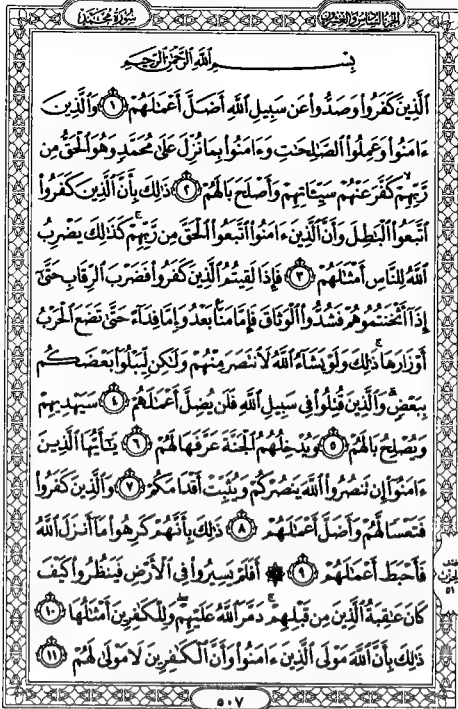 سُورَةُ مُحَمَّدٍ
الجُزْءُ السَّادِسُ وَالعِشْرُونَ
بِسْمِ اللَّهِ الرَّحْمَٰنِ الرَّحِيمِ
ٱلَّذِينَ كَفَرُوا۟ وَصَدُّوا۟ عَن سَبِيلِ ٱللَّهِ أَضَلَّ أَعْمَٰلَهُمْ ١ وَٱلَّذِينَ
ءَامَنُوا۟ وَعَمِلُوا۟ ٱلصَّٰلِحَٰتِ وَءَامَنُوا۟ بِمَا نُزِّلَ عَلَىٰ مُحَمَّدٍ وَهُوَ ٱلْحَقُّ مِن
رَّبِّهِمْ ۙ كَفَّرَ عَنْهُمْ سَيِّـَٔاتِهِمْ وَأَصْلَحَ بَالَهُمْ ٢ ذَٰلِكَ بِأَنَّ ٱلَّذِينَ كَفَرُوا۟
ٱتَّبَعُوا۟ ٱلْبَٰطِلَ وَأَنَّ ٱلَّذِينَ ءَامَنُوا۟ ٱتَّبَعُوا۟ ٱلْحَقَّ مِن رَّبِّهِمْ ۚ كَذَٰلِكَ يَضْرِبُ
ٱللَّهُ لِلنَّاسِ أَمْثَٰلَهُمْ ٣ فَإِذَا لَقِيتُمُ ٱلَّذِينَ كَفَرُوا۟ فَضَرْبَ ٱلرِّقَابِ حَتَّىٰٓ
إِذَآ أَثْخَنتُمُوهُمْ فَشُدُّوا۟ ٱلْوَثَاقَ فَإِمَّا مَنًّۢا بَعْدُ وَإِمَّا فِدَآءً حَتَّىٰ تَضَعَ ٱلْحَرْبُ
أَوْزَارَهَا ۚ ذَٰلِكَ وَلَوْ يَشَآءُ ٱللَّهُ لَٱنتَصَرَ مِنْهُمْ وَلَٰكِن لِّيَبْلُوَا۟ بَعْضَكُم
بِبَعْضٍ ۗ وَٱلَّذِينَ قُتِلُوا۟ فِى سَبِيلِ ٱللَّهِ فَلَن يُضِلَّ أَعْمَٰلَهُمْ ٤ سَيَهْدِيهِمْ
وَيُصْلِحُ بَالَهُمْ ٥ وَيُدْخِلُهُمُ ٱلْجَنَّةَ عَرَّفَهَا لَهُمْ ٦ يَٰٓأَيُّهَا ٱلَّذِينَ
ءَامَنُوٓا۟ إِن تَنصُرُوا۟ ٱللَّهَ يَنصُرْكُمْ وَيُثَبِّتْ أَقْدَامَكُمْ ٧ وَٱلَّذِينَ كَفَرُوا۟
فَتَعْسًا لَّهُمْ وَأَضَلَّ أَعْمَٰلَهُمْ ٨ ذَٰلِكَ بِأَنَّهُمْ كَرِهُوا۟ مَآ أَنزَلَ ٱللَّهُ
فَأَحْبَطَ أَعْمَٰلَهُمْ ٩ ۞ أَفَلَمْ يَسِيرُوا۟ فِى ٱلْأَرْضِ فَيَنظُرُوا۟ كَيْفَ
كَانَ عَٰقِبَةُ ٱلَّذِينَ مِن قَبْلِهِمْ ۚ دَمَّرَ ٱللَّهُ عَلَيْهِمْ ۖ وَلِلْكَٰفِرِينَ أَمْثَٰلُهَا ١٠
ذَٰلِكَ بِأَنَّ ٱللَّهَ مَوْلَى ٱلَّذِينَ ءَامَنُوا۟ وَأَنَّ ٱلْكَٰفِرِينَ لَا مَوْلَىٰ لَهُمْ ١١
نصف
الحزب
٥١
٥٠٧